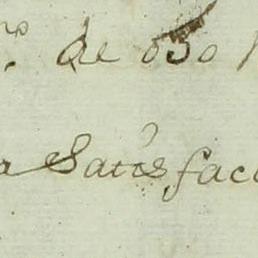 de 050
a Satisfac